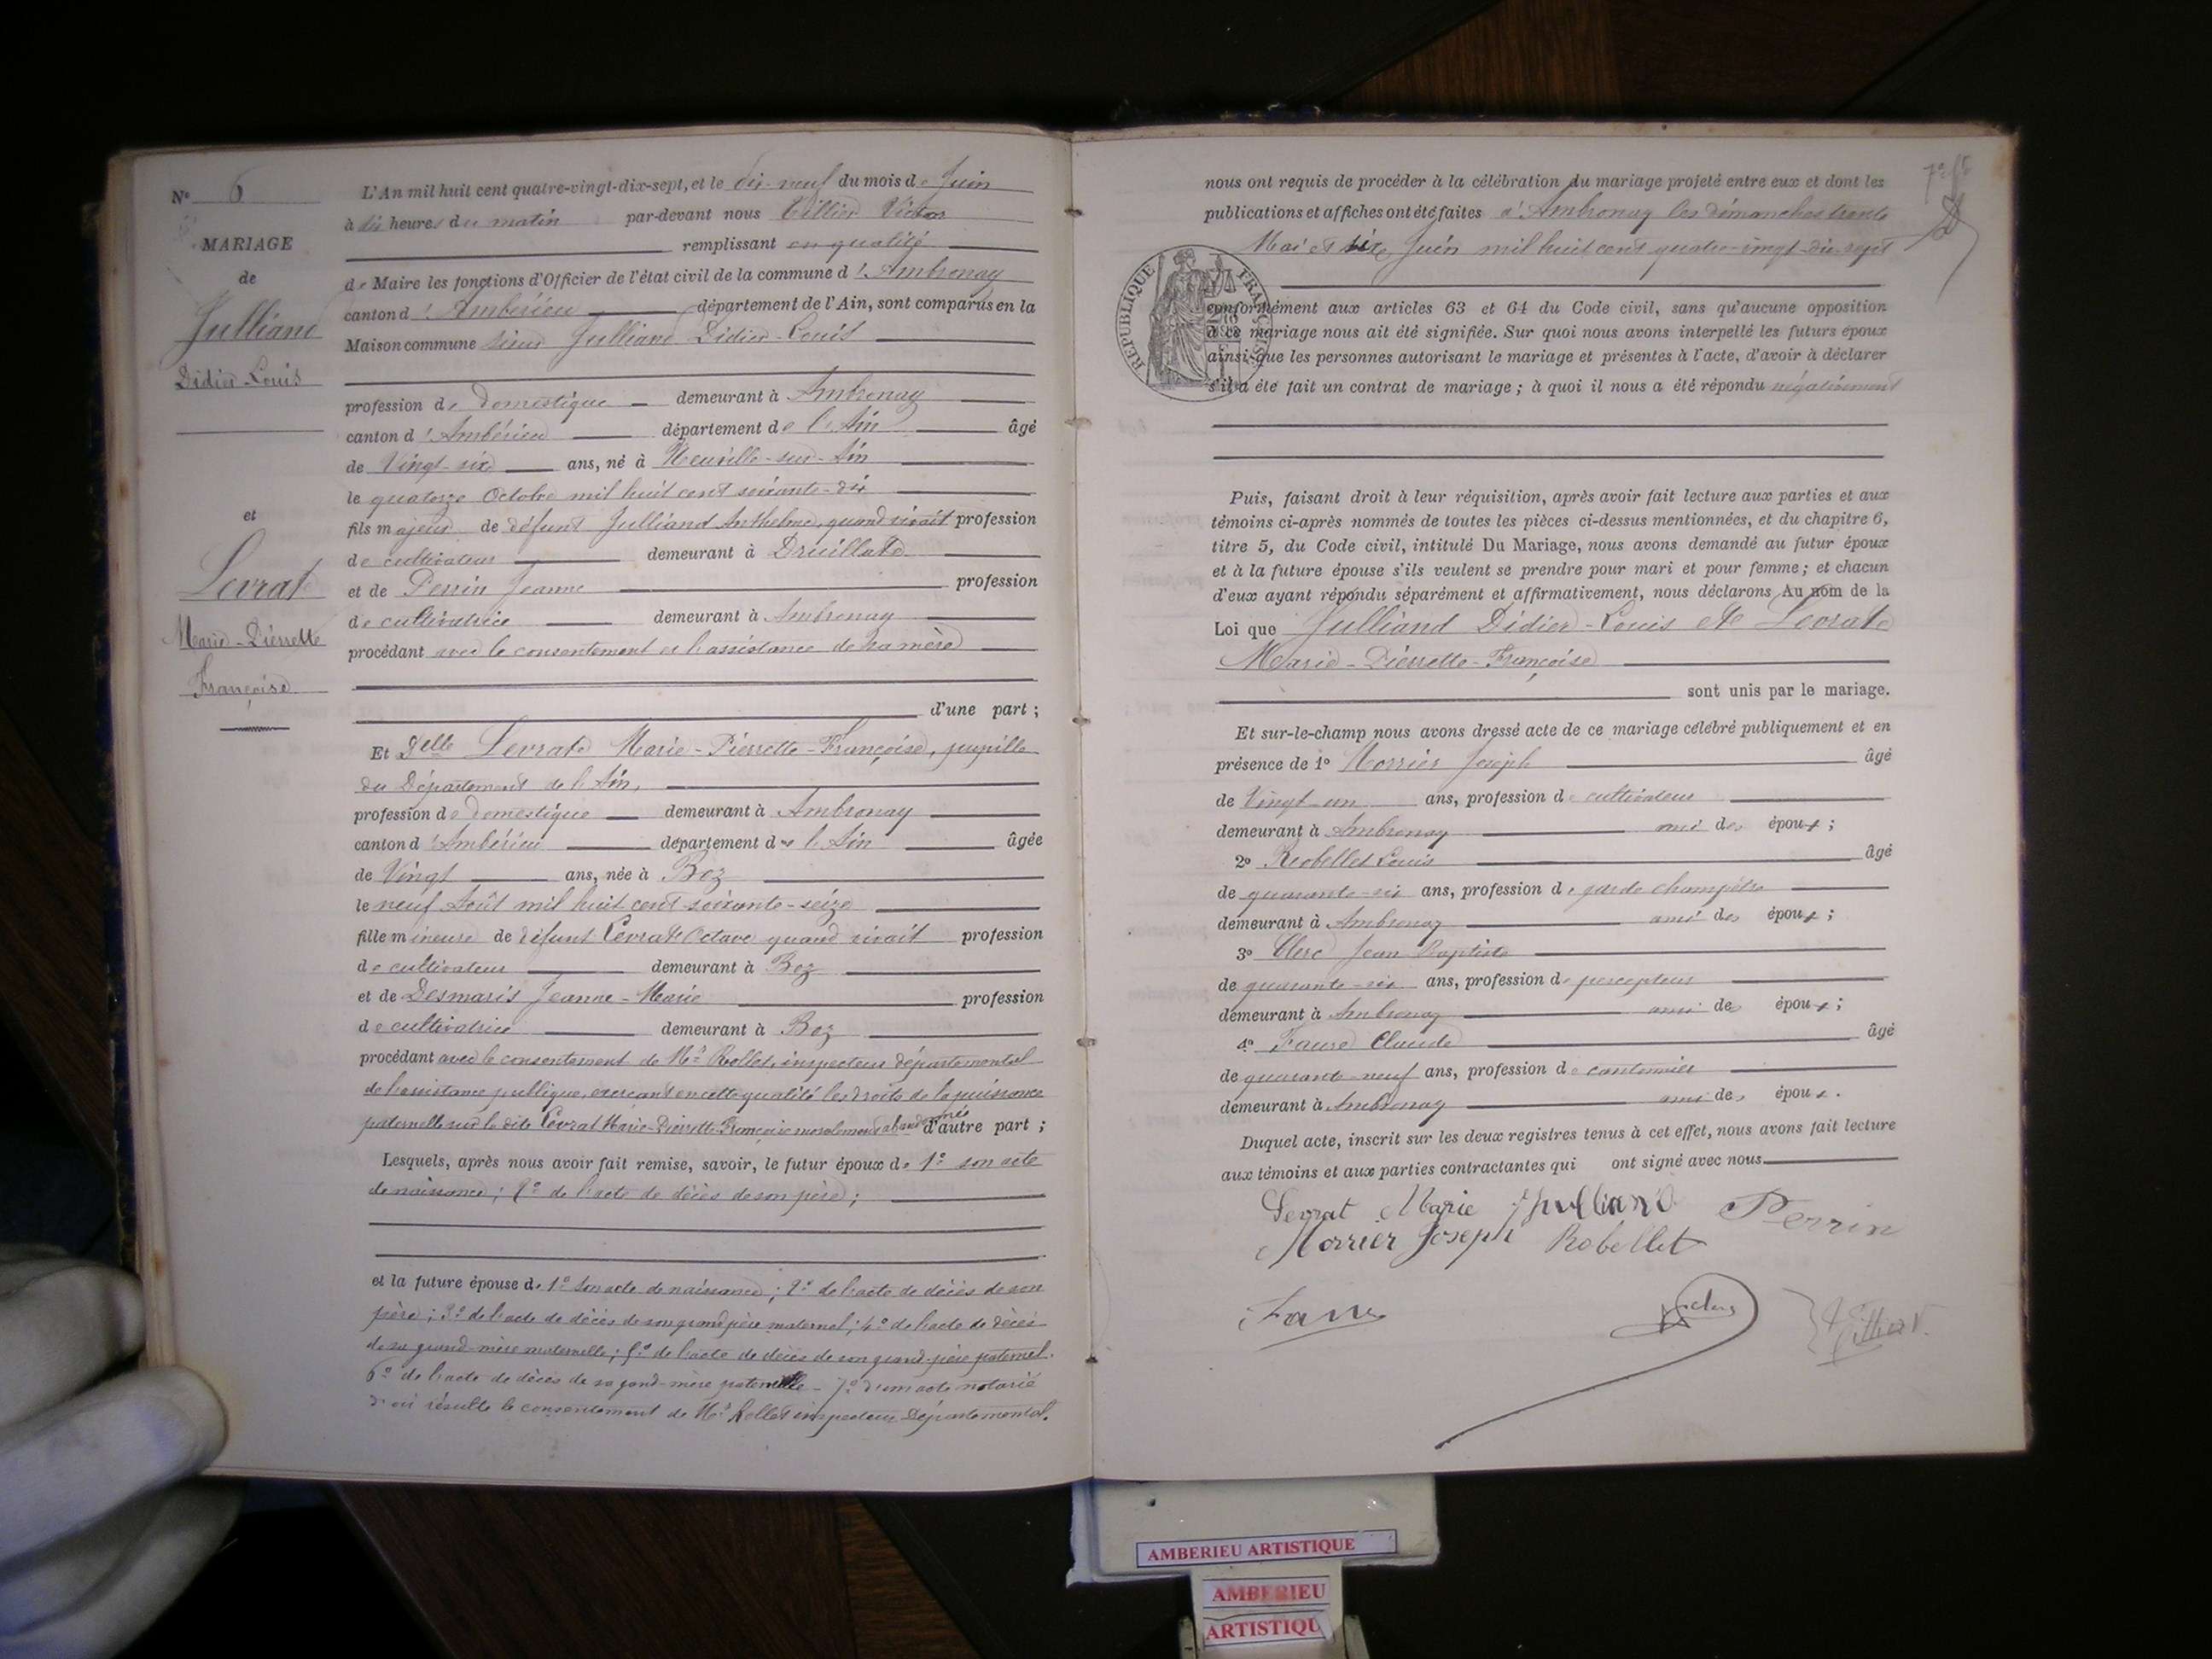 N° 6
MARIAGE
de
Julliand
Didier-Louis
et
Levrat
Marie-Pierrette
Françoise
L'An mil huit cent quatre-vingt-dix-sept, et le dix-neuf du mois de Juin
à dix heures du matin par-devant nous Tillier Victor
remplissant en qualité
de Maire les fonctions d'Officier de l'état civil de la commune d'Ambronay
canton d'Ambérieu département de l'Ain, sont comparus en la
Maison commune sieur Julliand Didier-Louis
profession de domestique demeurant à Ambronay
canton d'Ambérieu département de l'Ain âgé
de Vingt-six ans, né à Neuville-sur-Ain
le quatorze Octobre mil huit cent soixante-dix
fils majeur de défunt Julliand Anthelme, quand vivait profession
de cultivateur demeurant à Druillat
et de Perrin Jeanne profession
de cultivatrice demeurant à Ambronay
procédant avec le consentement et l'assistance de sa mère
d'une part ;
Et Delle Levrat Marie-Pierrette-Françoise, pupille
du Département de l'Ain,
profession de domestique demeurant à Ambronay
canton d'Ambérieu département de l'Ain âgée
de Vingt ans, née à Boz
le neuf Août mil huit cent soixante-seize
fille mineure de défunt Levrat Octave quand vivait profession
de cultivateur demeurant à Boz
et de Desmaris Jeanne-Marie profession
de cultivatrice demeurant à Boz
procédant avec le consentement de Mr Rollet, inspecteur départemental
de l'assistance publique, exerçant en cette qualité les droits de la puissance
paternelle sur la dite Levrat Marie-Pierrette-Françoise moralement abandonnée d'autre part ;
Lesquels, après nous avoir fait remise, savoir, le futur époux de 1° son acte
de naissance ; 2° de l'acte de décès de son père ;
et la future épouse de 1° son acte de naissance ; 2° de l'acte de décès de son
père ; 3° de l'acte de décès de son grand père maternel ; 4° de l'acte de décès
de sa grand-mère maternelle ; 5° de l'acte de décès de son grand-père paternel.
6° de l'acte de décès de sa grand-mère paternelle - 7° d'un acte notarié
d'où résulte le consentement de Mr Rollet inspecteur Départemental.
nous ont requis de procéder à la célébration du mariage projeté entre eux et dont les
publications et affiches ont été faites à Ambronay les dimanches trente
Mai et six Juin mil huit cent quatre-vingt-dix-sept
RÉPUBLIQUE FRANÇAISE
conformément aux articles 63 et 64 du Code civil, sans qu'aucune opposition
à ce mariage nous ait été signifiée. Sur quoi nous avons interpellé les futurs époux
ainsi que les personnes autorisant le mariage et présentes à l'acte, d'avoir à déclarer
s'il a été fait un contrat de mariage ; à quoi il nous a été répondu négativement
Puis, faisant droit à leur réquisition, après avoir fait lecture aux parties et aux
témoins ci-après nommés de toutes les pièces ci-dessus mentionnées, et du chapitre 6,
titre 5, du Code civil, intitulé Du Mariage, nous avons demandé au futur époux
et à la future épouse s'ils veulent se prendre pour mari et pour femme ; et chacun
d'eux ayant répondu séparément et affirmativement, nous déclarons Au nom de la
Loi que Julliand Didier-Louis et Levrat
Marie-Pierrette-Françoise
sont unis par le mariage.
Et sur-le-champ nous avons dressé acte de ce mariage célébré publiquement et en
présence de 1° Morrier Joseph âgé
de Vingt-un ans, profession de cultivateur
demeurant à Ambronay ami des époux ;
2° Robellet Louis âgé
de quarante-six ans, profession de garde champêtre
demeurant à Ambronay ami des époux ;
3° Clerc Jean Baptiste
de quarante-six ans, profession de percepteur
demeurant à Ambronay ami des époux ;
4° Faure Claude âgé
de quarante-neuf ans, profession de cantonnier
demeurant à Ambronay ami des époux.
Duquel acte, inscrit sur les deux registres tenus à cet effet, nous avons fait lecture
aux témoins et aux parties contractantes qui ont signé avec nous.
Levrat Marie Julliand Perrin
Morrier Joseph Robellet
Faure Clerc Tillier V.
AMBERIEU ARTISTIQUE
AMBERIEU
ARTISTIQU